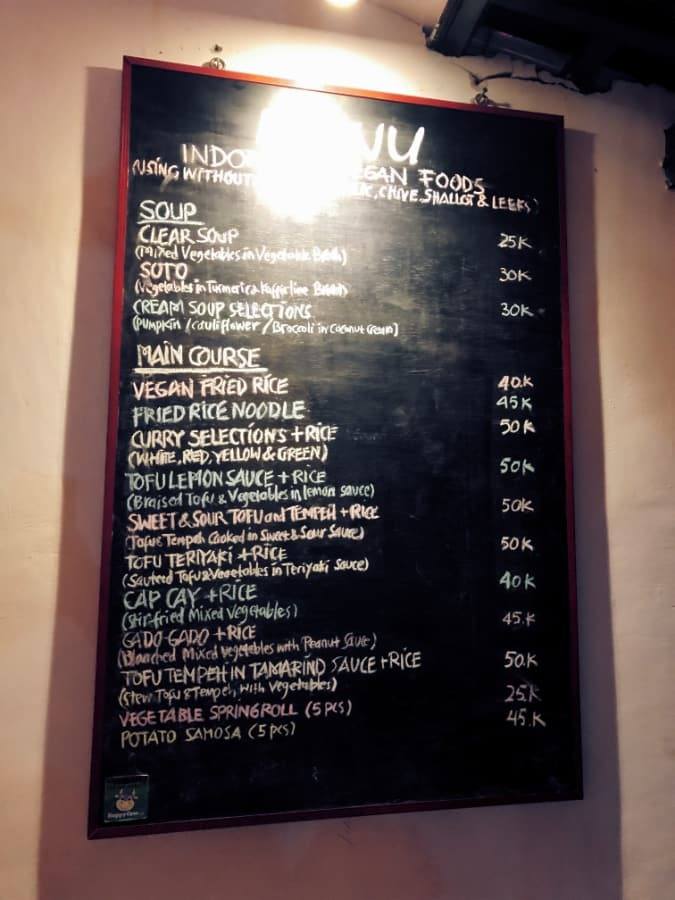 MENU
INDO VEGAN FOODS
(USING WITHOUT CHIVE, SHALLOT & LEEKS)
SOUP
CLEAR SOUP 25K
(Mixed Vegetables in Vegetable Broth)
SOTO 30K
(Vegetables in Turmeric & Kaffir lime Broth)
CREAM SOUP SELECTIONS 30K
(Pumpkin / Cauliflower / Broccoli in Coconut Cream)
MAIN COURSE
VEGAN FRIED RICE 40.K
FRIED RICE NOODLE 45K
CURRY SELECTIONS + RICE 50K
(WHITE, RED, YELLOW & GREEN)
TOFU LEMON SAUCE + RICE 50K
(Braised Tofu & Vegetables in lemon sauce)
SWEET & SOUR TOFU and TEMPEH + RICE 50K
(Tofu & Tempeh Cooked in Sweet & Sour Sauce)
TOFU TERIYAKI + RICE 50K
(Sauteed Tofu & Vegetables in Teriyaki Sauce)
CAP CAY + RICE 40K
(Stir-fried Mixed Vegetables)
GADO GADO + RICE 45.K
(Blanched Mixed Vegetables with Peanut Sauce)
TOFU TEMPEH IN TAMARIND SAUCE + RICE 50.K
(Stew Tofu & Tempeh, With Vegetables)
VEGETABLE SPRINGROLL (5 pcs) 25.K
POTATO SAMOSA (5 pcs) 45.K
Happy Cow